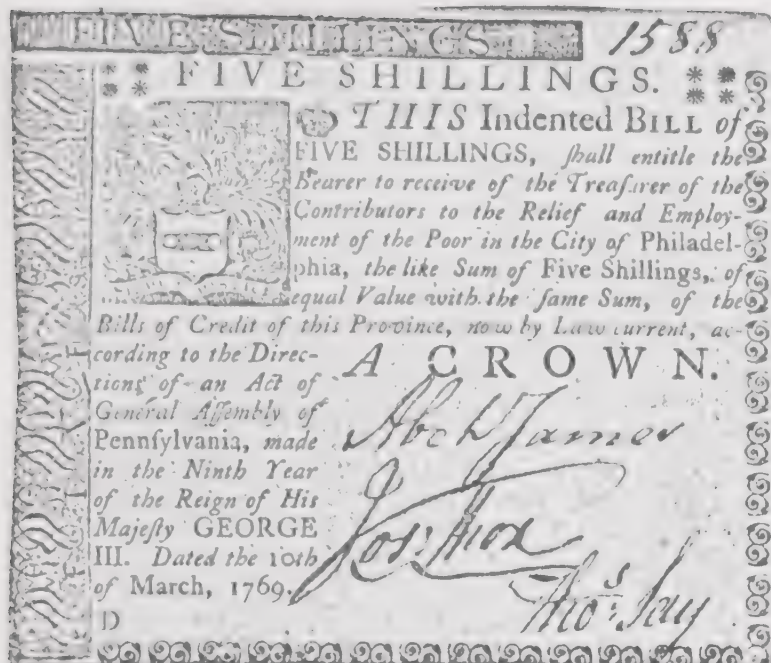 FIVE SHILLINGS 1588
FIVE SHILLINGS.
THIS Indented BILL of
FIVE SHILLINGS, ſhall entitle the
Bearer to receive of the Treaſurer of the
Contributors to the Relief and Employ-
ment of the Poor in the City of Philadel-
phia, the like Sum of Five Shillings, of
equal Value with the ſame Sum, of the
Bills of Credit of this Province, now by Law current, ac-
cording to the Direc-
tions of an Act of
General Aſſembly of
Pennſylvania, made
in the Ninth Year
of the Reign of His
Majeſty GEORGE
III. Dated the 10th
of March, 1769.
D
A CROWN.
Abel James
Jos: Fox
Thos: Say